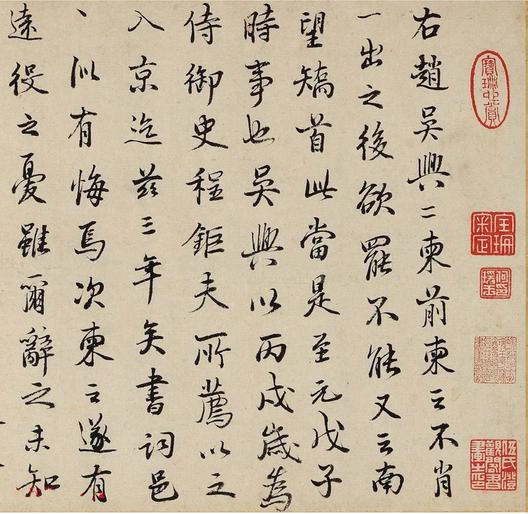 右趙吳興二柬前柬云不肖
一出之後欲罷不能又云南
望矯首此當是至元戊子
時事也吳興以丙戌歲為
侍御史程鉅夫所薦以之
入京迄茲三年矣書詞邑
、似有悔焉次柬云遂有
遠役之憂雖爾辭之未知